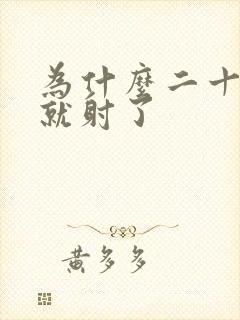 為什麼二十
就射了
黃多多